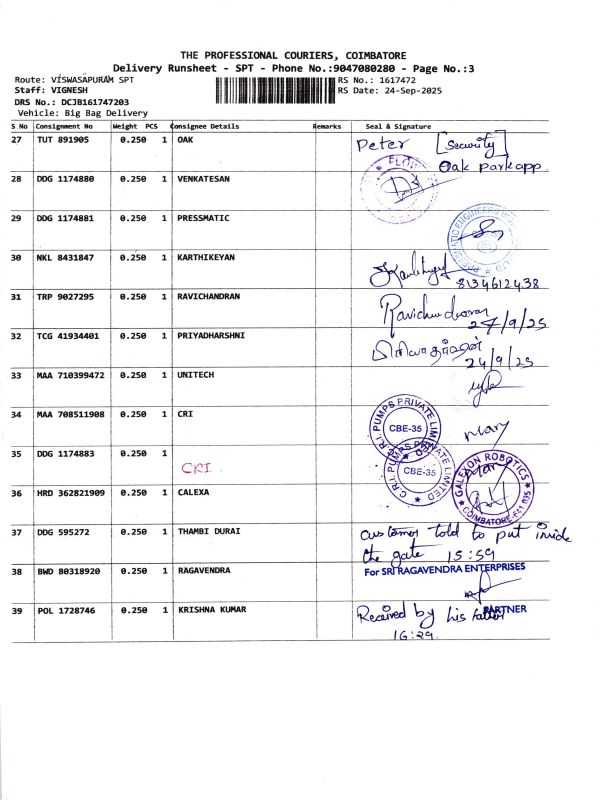 THE PROFESSIONAL COURIERS, COIMBATORE
Delivery Runsheet - SPT - Phone No.:9047080280 - Page No.:3
Route: VISWASAPURAM SPT
RS No.: 1617472
Staff: VIGNESH
RS Date: 24-Sep-2025
DRS No.: DCJB161747203
Vehicle: Big Bag Delivery
S No Consignment No Weight PCS Consignee Details Remarks Seal & Signature
27 TUT 891905 0.250 1 OAK Peter [Security]
Oak parkapp
28 DDG 1174880 0.250 1 VENKATESAN
29 DDG 1174881 0.250 1 PRESSMATIC
30 NKL 8431847 0.250 1 KARTHIKEYAN
8134612438
31 TRP 9027295 0.250 1 RAVICHANDRAN Ravichandran
27/9/25
32 TCG 41934401 0.250 1 PRIYADHARSHNI
24/9/25
33 MAA 710399472 0.250 1 UNITECH
34 MAA 708511908 0.250 1 CRI Mary
C.R.I. PUMPS PRIVATE LIMITED
CBE-35
35 DDG 1174883 0.250 1 CRI Mary
C.R.I. PUMPS PRIVATE LIMITED
CBE-35
36 HRD 362821909 0.250 1 CALEXA
ROBOTICS
COIMBATORE-641 035
37 DDG 595272 0.250 1 THAMBI DURAI Customer told to put inside
the gate 15:59
38 BWD 80318920 0.250 1 RAGAVENDRA For SRI RAGAVENDRA ENTERPRISES
PARTNER
39 POL 1728746 0.250 1 KRISHNA KUMAR Received by his father
16:29